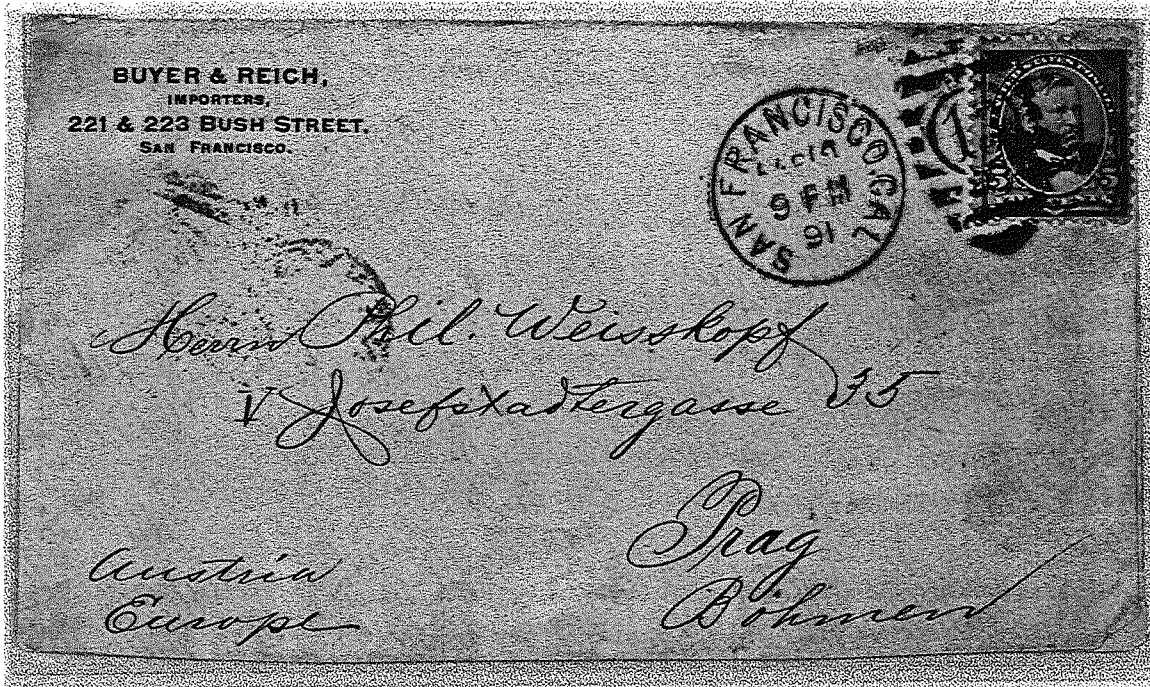 BUYER & REICH,
IMPORTERS,
221 & 223 BUSH STREET.
SAN FRANCISCO.
SAN FRANCISCO, CAL
91
1
Herrn Phil. Weisskopf
V Josefstadtergasse 35
Prag
Böhmen
Austria
Europe